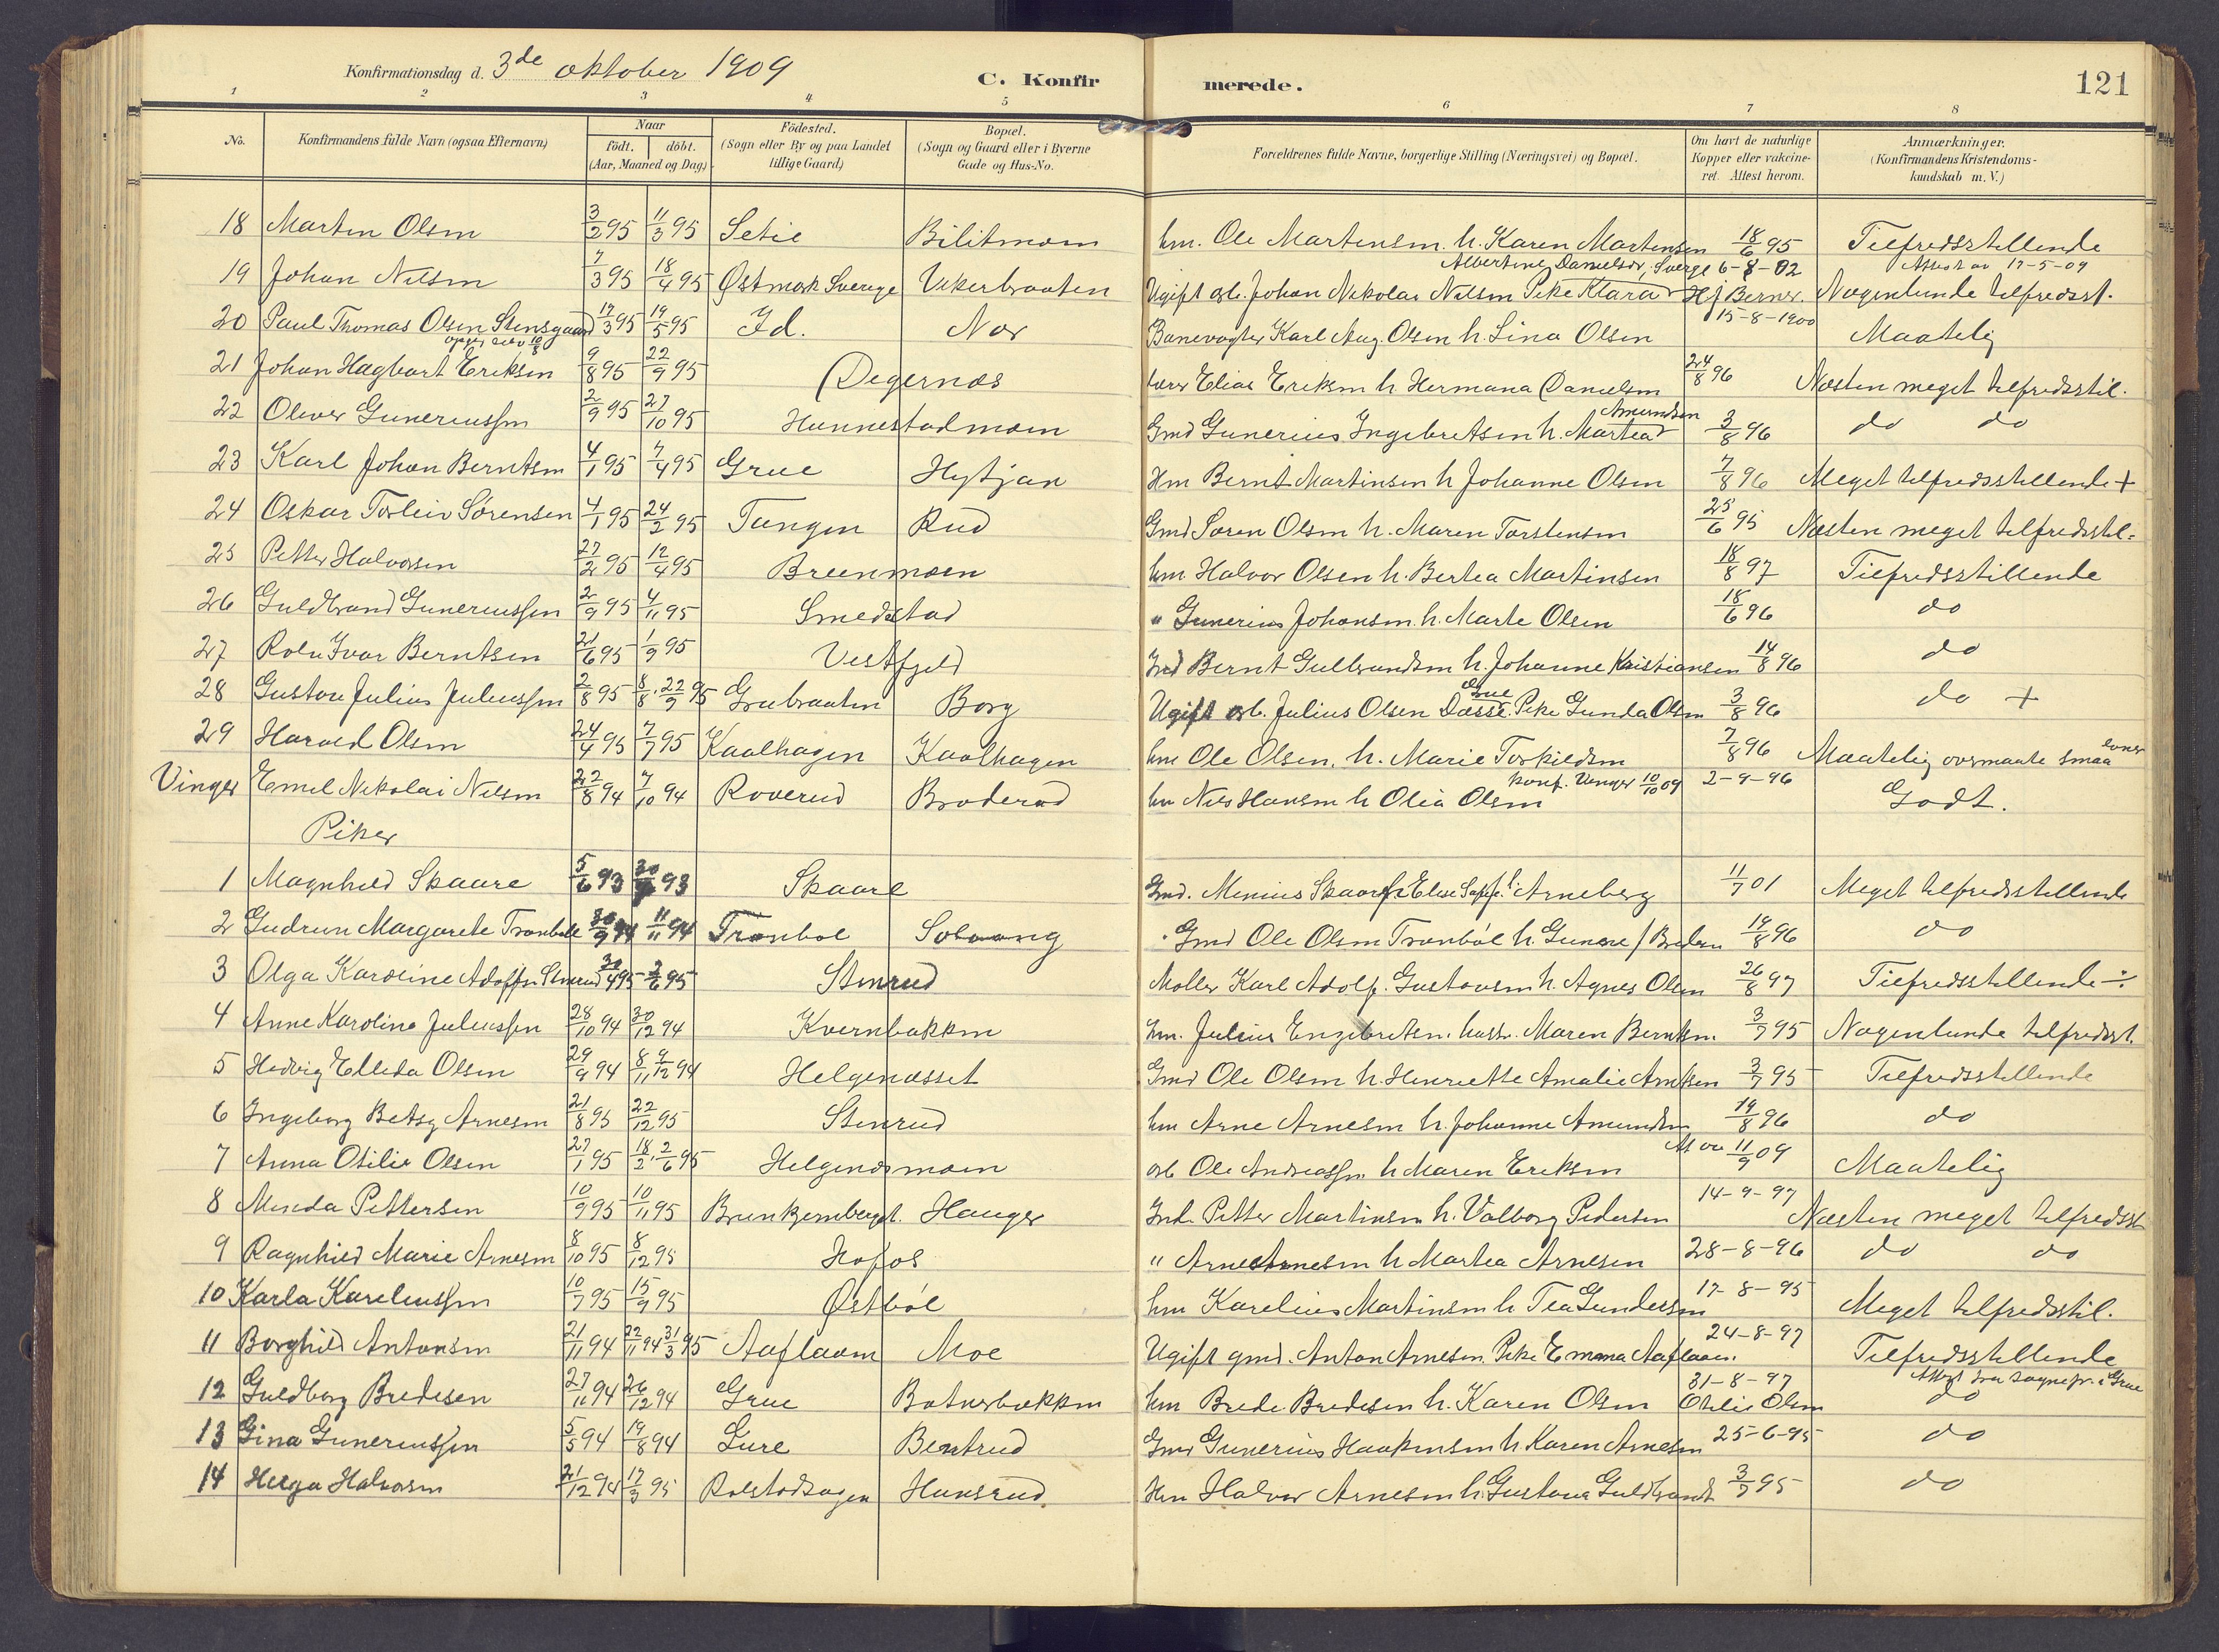 Konfirmationsdag d. 3de oktober 1909
C. Konfirmerede.
121
1 2 3 4 5 6 7 8
No. Konfirmandens fulde Navn (ogsaa Efternavn) Naar födt. döbt. (Aar, Maaned og Dag) Födested. (Sogn eller By og paa Landet tillige Gaard) Bopæl. (Sogn og Gaard eller i Byerne Gade og Hus-No. Forældrenes fulde Navne, borgerlige Stilling (Næringsvei) og Bopæl. Om havt de naturlige Kopper eller vakcineret. Attest herom. Anmærkninger. (Konfirmandens Kristendomskundskab m. V.)
18 Martin Olsen 3/2 95 11/3 95 Setie Bilitmoen hm. Ole Martensen. h. Karen Martensen 18/6 95 Tilfredsstillende
Albertine Danielsdr, Sverge 6-8-02 Attest av 17-5-09
19 Johan Nilsen 7/3 95 18/4 95 Østmark Sverige Vikerbraaten Ugift arb. Johan Nikolai Nilsen Pike Klara Hj Berner. Nogenlunde tilfredsst.
20 Paul Thomas Olsen Stensgaard 17/3 95 19/5 95 Id. Nor Banevogter Karl Aug. Olsen h. Lina Olsen 15-8-1900 Maatelig
21 Johan Hagbart Eriksen 9/8 95 22/9 95 Degernæs Elias Eriksen h Hermana Danielsen 24/8 96 Næsten meget tilfredsstil.
22 Oliver Guneriussen 2/9 95 27/10 95 Hunnestadmoen Gmd Gunerius Ingebretsen h. Martea Amundsen 3/8 96 do do
23 Karl Johan Berntsen 4/1 95 7/4 95 Grue Hytjan Hm Bernt Martinsen h Johanne Olsen 7/8 96 Meget tilfredsstillende +
24 Oskar Torleiv Sørensen 4/1 95 24/2 95 Tangen Rud Gmd Søren Olsen h. Maren Torstensen 25/6 95 Næsten meget tilfredsstil.
25 Petter Halvorsen 27/2 95 12/4 95 Breenmoen hm Halvor Olsen h. Bertea Martinsen 18/8 97 Tilfredsstillende
26 Guldbrand Guneriussen 2/9 95 4/11 95 Smedstad " Gunerius Johansen h. Marte Olsen 18/6 96 do
27 Rolv Ivar Berntsen 21/6 95 1/9 95 Vestfjeld Ind Bernt Gulbrandsen h. Johanne Kristiansen 14/8 96 do
28 Gustav Julius Juliussen 2/8 95 8/8. 22/9 95 Grubraaten Borg Ugift arb. Julius Olsen Dæsse Grue. Pike Gunda Olsen 3/8 96 do +
29 Harald Olsen 24/4 95 7/7 95 Kaalhagen Kaalhagen hm Ole Olsen. h. Marie Torkildsen 7/8 96 Maatelig overmaate smaa evner
Vinger Emil Nikolai Nilsen 22/8 94 7/10 94 Roverud Broderud hm Nils Hansen h Olia Olsen konf. Vinger 10/10 09 2-9-96 Godt.
Piker
1 Magnhild Skaare 5/6 93 30/7 93 Skaare Gmd. Minius Skaare h Elise Arneberg 11/7 01 Meget tilfredsstillende
2 Gudrun Margarete Trønbøl 30/9 94 11/11 94 Trønbøl Solvang Gmd Ole Olsen Trønbøl h. Gunere f Bredesen 19/8 96 do
3 Olga Karoline Adolfsen Stenrud 30/4 95 2/6 95 Stenrud Møller Karl Adolf. Gustavsen h. Agnes Olsen 26/8 97 Tilfredsstillende ÷
4 Anne Karoline Juliussen 28/10 94 30/12 94 Kvernbakken hm. Julius Engebretsen. hustr. Maren Berntsen 3/7 95 Nogenlunde tilfredsst.
5 Hedvig Ellida Olsen 29/9 94 8/11 9/12 94 Helgenæsset Gmd Ole Olsen h. Henriette Amalie Arntsen 3/7 95 Tilfredsstillende
6 Ingeborg Betsy Arnesen 21/8 95 22/12 95 Stenrud hm Arne Arnesen h. Johanne Amundsen 19/8 96 do
7 Anna Otilie Olsen 27/1 95 18/2. 2/6 95 Helgenæsmoen arb Ole Andreassen h Maren Eriksen At av 11/9 09 Maatelig
8 Minda Pettersen 10/9 95 10/11 95 Brunkjernberget. Hauger Ind. Petter Martinsen h. Valborg Pedersen 14-9-97 Næsten meget tilfredsst
9 Ragnhild Marie Arnesen 8/10 95 8/12 95 Hofos " Arne Arnesen h Martea Arnesen 28-8-96 do do
10 Karla Kareliussen 10/7 95 15/9 95 Østbøl hm Karelius Martinsen h Tea Gundersen 17-8-95 Meget tilfredsstil.
11 Borghild Antonsen 21/11 94 22/11 94 31/3 95 Aaflaaen Moe Ugift gmd. Anton Arnesen Pike Emma Aaflaaen. 24-8-97 Tilfredsstillende
12 Guldborg Bredesen 27/11 94 26/12 94 Grue Batnerbakken hm Brede Bredesen h. Karen Olsen Otilie Olsen 31-8-97 Attest fra sognepr. i Grue do
13 Gina Guneriussen 5/5 94 19/8 94 Lure Bentrud Gmd Gunerius Haakensen h Karen Arnesen 25-6-95 do
14 Helga Halvorsen 21/12 94 17/3 95 Rolstadsagen Hansrud. Hm Halvor Arnesen h. Gustava Guldbrands 3/7 95 do